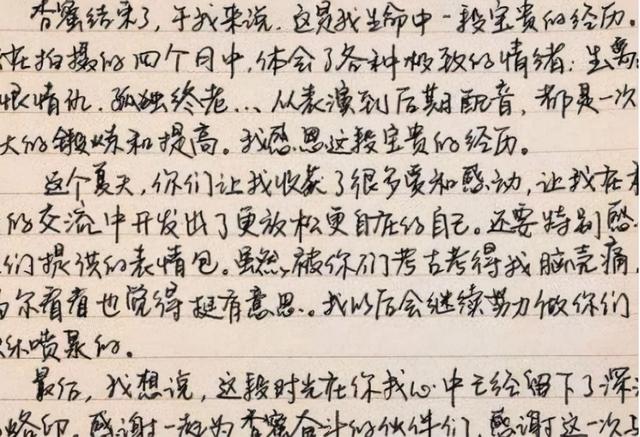 香蜜结束了,于我来说,这是我生命中一段宝贵的经历。
在拍摄的四个月中,体会了各种极致的情绪:生离
恨情仇.孤独终老...从表演到后期配音,都是一次
大的锻炼和提高。我感恩这段宝贵的经历。
这个夏天,你们让我收获了很多爱和感动,让我在
的交流中开发出了更放松更自在的自己。还要特别感
们提供的表情包。虽然,被你们考古考得我脑壳痛,
尔看看也觉得挺有意思。我以后会继续努力做你们
喷泉的。
最后,我想说,这段时光在你我心中已经留下了深
烙印。感谢一起为香蜜奋斗的伙伴们,感谢这一次